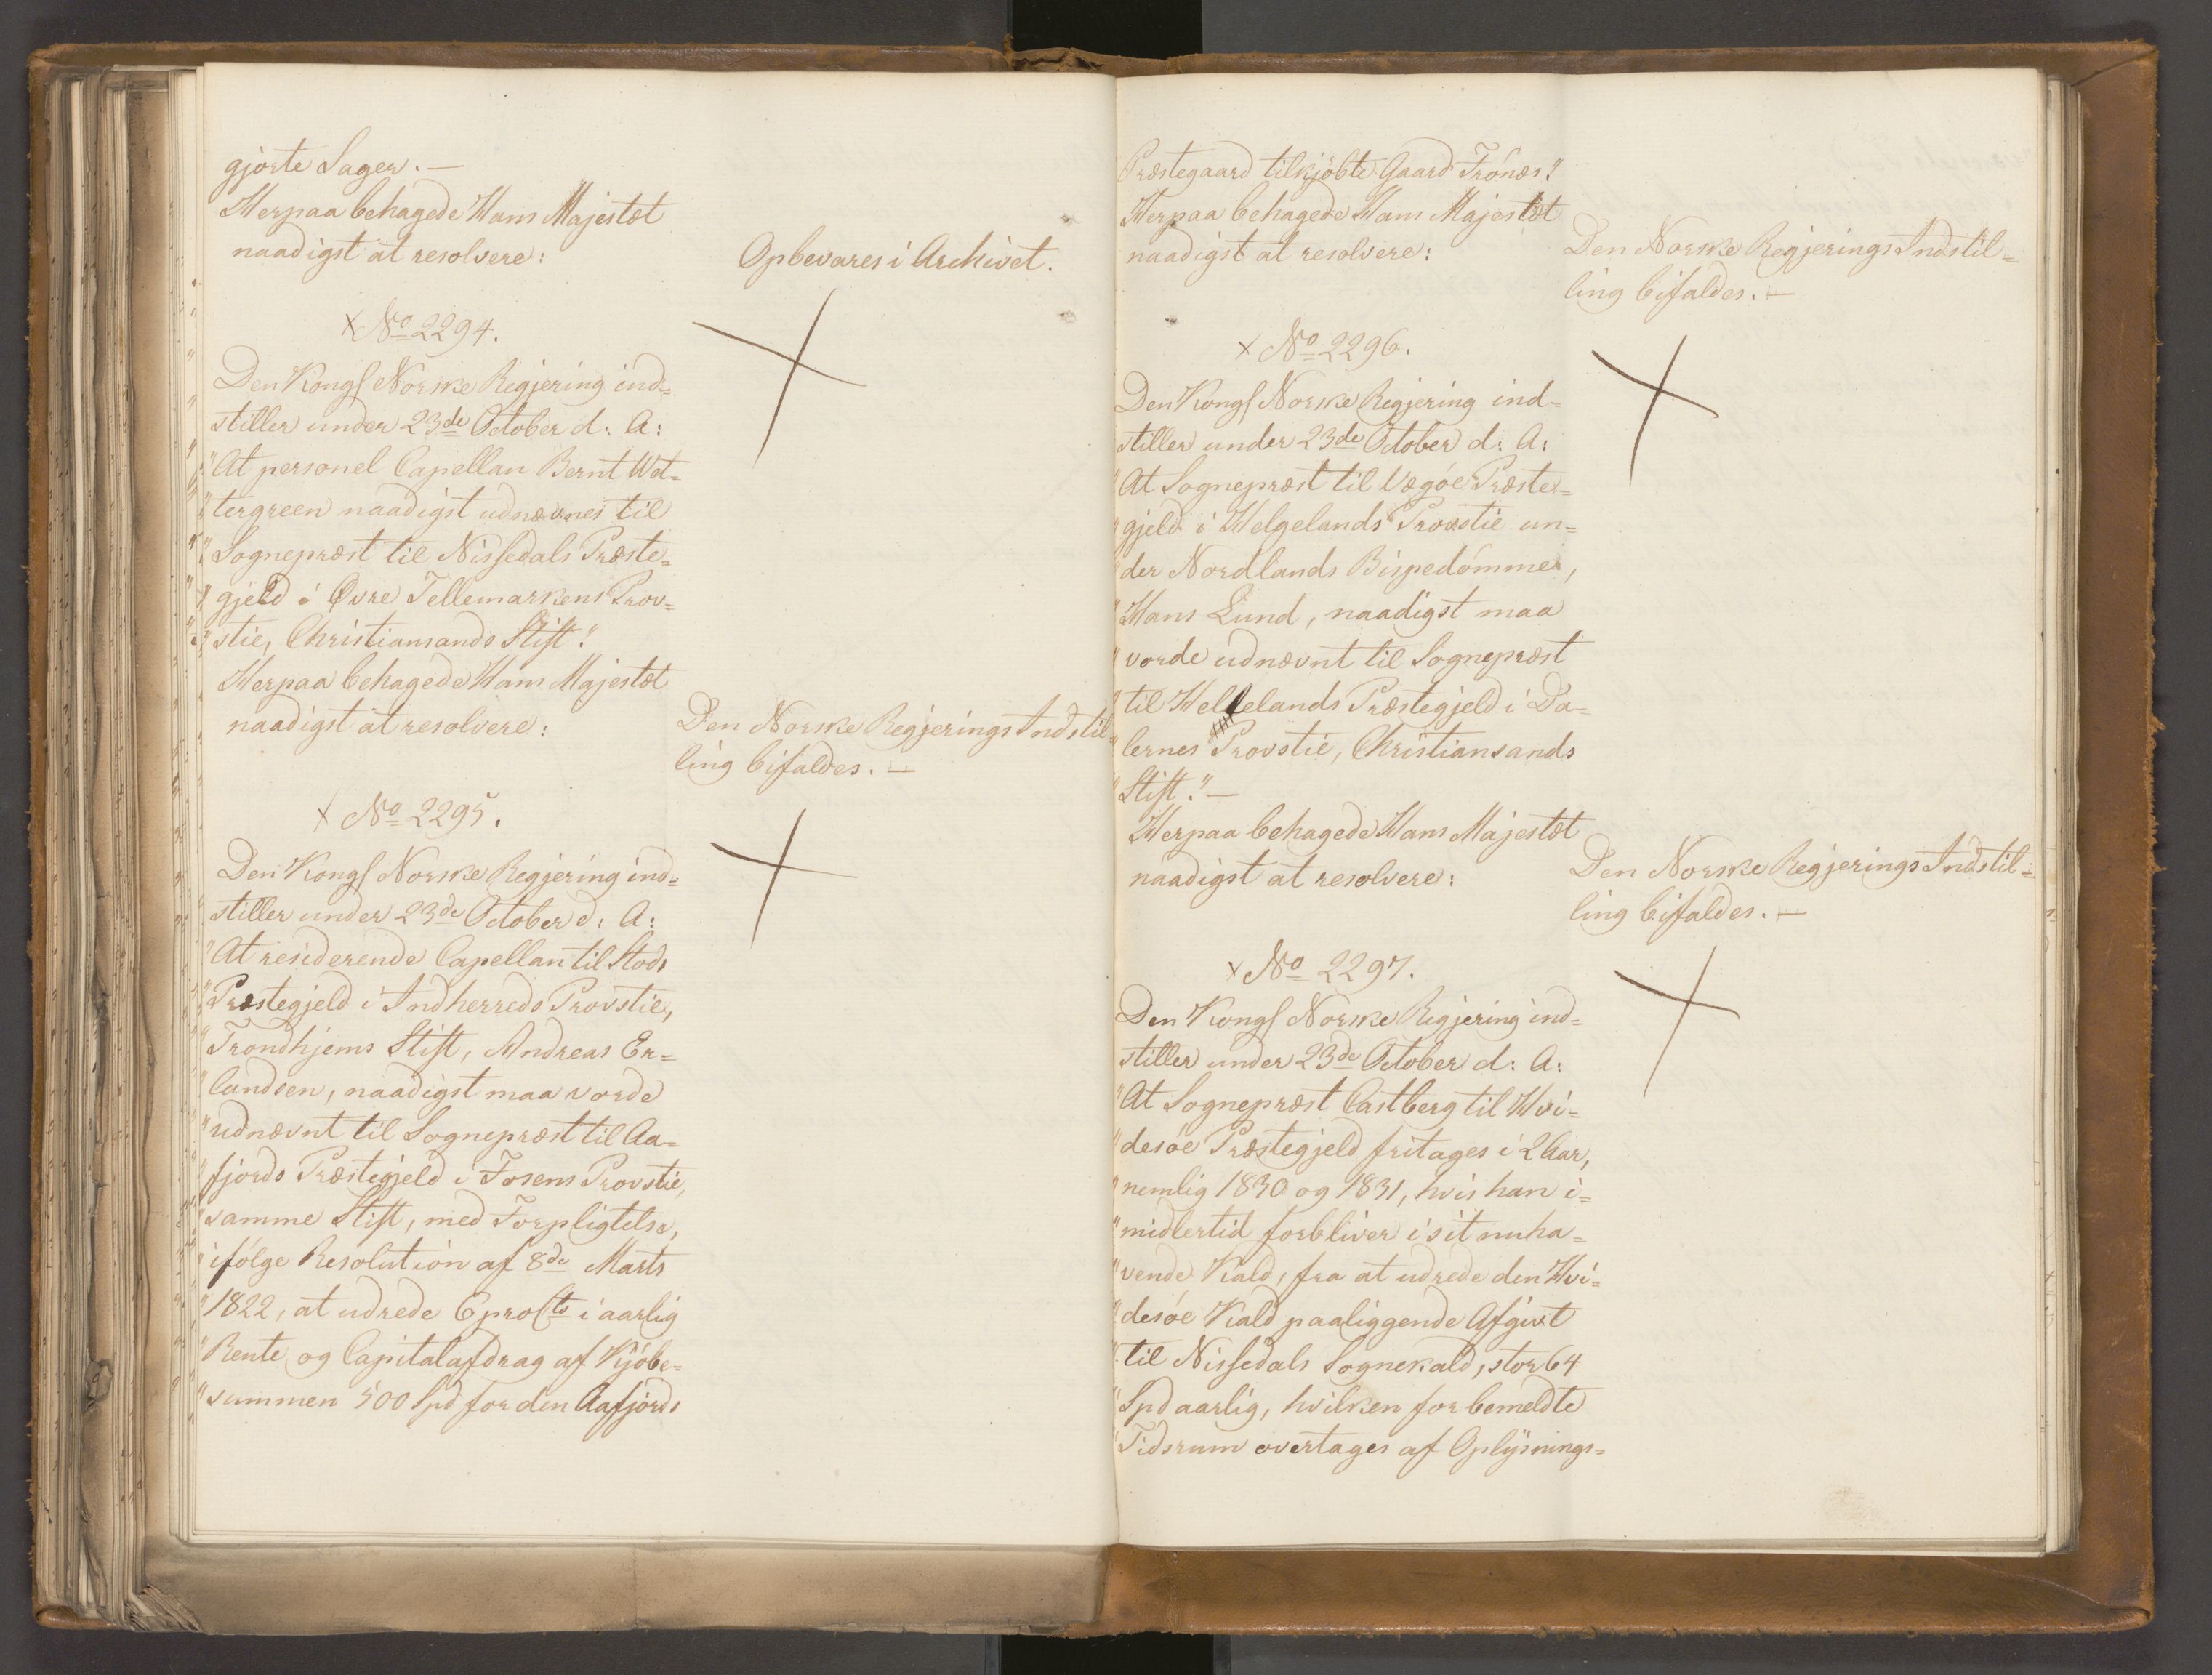 gjorte Sager. —
Herpaa behagede Hans Majestæt
naadigst at resolvere:
Opbevares i Archivet.
× No 2294.
Den Kongl Norske Regjering ind=
stiller under 23de October d: A:
"At personel Capellan Bernt Wet=
"tergreen naadigst udnævnes til
"Sognepræst til Nissedals Præste=
"gjeld i Øvre Tellemarkens Prov=
"stie, Christiansands Stift."
Herpaa behagede Hans Majestæt
naadigst at resolvere:
Den Norske Regjerings Indstil=
ling bifaldes. —
× No 2295.
Den Kongl Norske Regjering ind=
stiller under 23de October d: A:
"At residerende Capellan til Stods
"Præstegjeld i Indherreds Provstie,
"Trondhjems Stift, Andreas Er=
"landsen, naadigst maa vorde
"udnævnt til Sognepræst til Aa=
"fjords Præstegjeld i Fosens Provstie,
"samme Stift, med Forpligtelse,
"ifölge Resolution af 8de Marts
"1822, at udrede 6 pro Cto i aarlig
"Rente og Capitalafdrag af Kjöbe=
"summen 500 Spd for den Aafjords
Præstegaard tilkjöbte Gaard Frönæs."
Herpaa behagede Hans Majestæt
naadigst at resolvere:
Den Norske Regjerings Indstil=
ling bifaldes. —
× No 2296.
Den Kongl Norske Regjering ind=
stiller under 23de October d: A:
"At Sognepræst til Vegöe Præste=
"gjeld i Helgelands Provstie un=
"der Nordlands Bispedömme,
"Hans Lund, naadigst maa
"vorde udnævnt til Sognepræst
"til Hellelands Præstegjeld i Da=
"lernes Provstie, Christiansands
"Stift." —
Herpaa behagede Hans Majestæt
naadigst at resolvere:
Den Norske Regjerings Indstil=
ling bifaldes. —
× No 2297.
Den Kongl Norske Regjering ind=
stiller under 23de October d: A:
"At Sognepræst Castberg til Hvi=
"desöe Præstegjeld fritages i 2 Aar,
"nemlig 1830 og 1831, hvis han i=
"midlertid forbliver i sit nuha=
"vende Kald, fra at udrede den Hvi=
"desöe Kald paaliggende Afgivt
"til Nissedals Sognekald, stor 64
"Spd aarlig, hvilken for bemeldte
"Tidsrum overtages af Oplysnings=